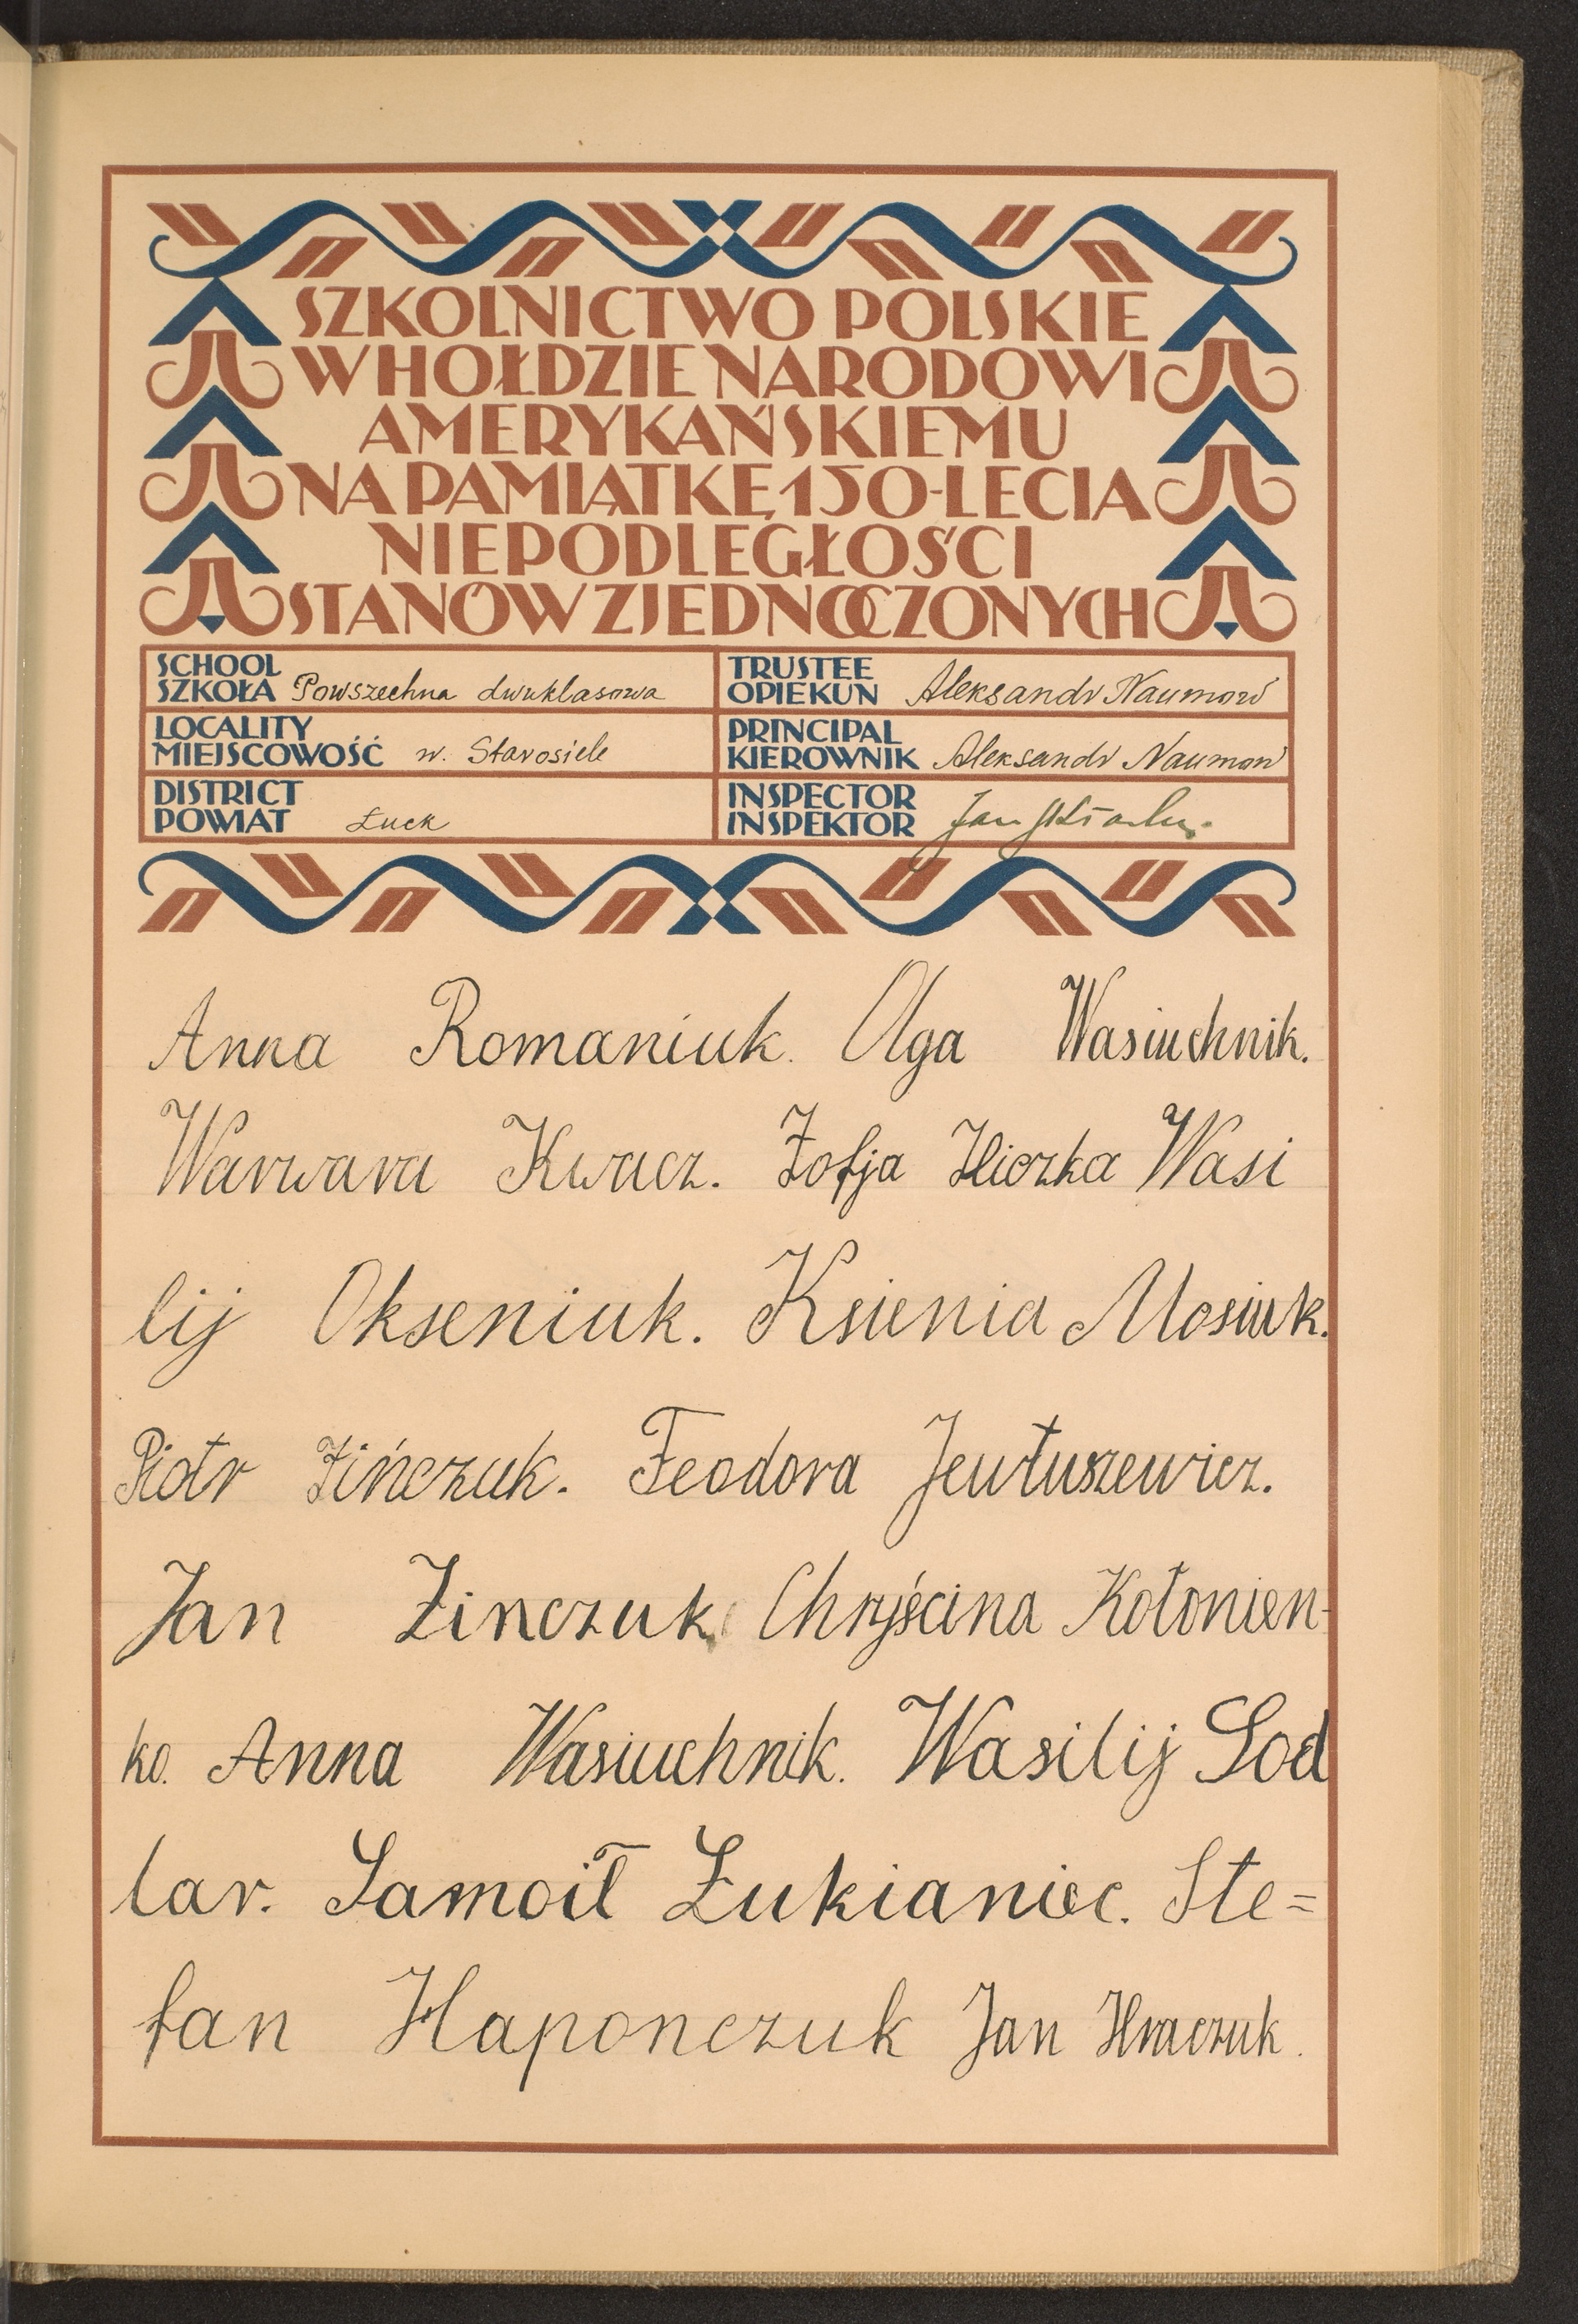 SZKOLNICTWO POLSKIE
W HOŁDZIE NARODOWI
AMERYKAŃSKIEMU
NA PAMIĄTKĘ 150-LECIA
NIEPODLEGŁOŚCI
STANÓW ZJEDNOCZONYCH
SCHOOL
SZKOŁA Powszechna dwuklasowa
TRUSTEE
OPIEKUN Aleksandr Naumow
LOCALITY
MIEJSCOWOŚĆ w. Starosiele
PRINCIPAL
KIEROWNIK Aleksandr Naumow
DISTRICT
POWIAT Łuck
INSPECTOR
INSPEKTOR Jan
Anna Romaniuk. Olga Wasiuchnik.
Warwara Kwacz. Zofja Iliczka Wasi
lij Okseniuk. Ksienia Mosiuk.
Piotr Zińczuk. Feodora Jewtuszewicz.
Jan Zinczuk Chryścina Kołonien-
ko. Anna Wasiuchnik. Wasilij Sod
lar. Samoił Łukianiec. Ste=
fan Haponczuk Jan Hraczuk.